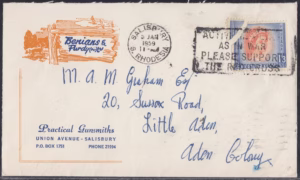 Benians &
Purdy's
SALISBURY
5 JAN
1959
S. RHODESIA
ACTIVE
AS IN WAR
PLEASE SUPPORT
THE RED CROSS
M. A. M Graham Esq
20, Sussex Road,
Little Aden,
Aden Colony
Practical Gunsmiths
UNION AVENUE - SALISBURY
P.O. BOX 1751